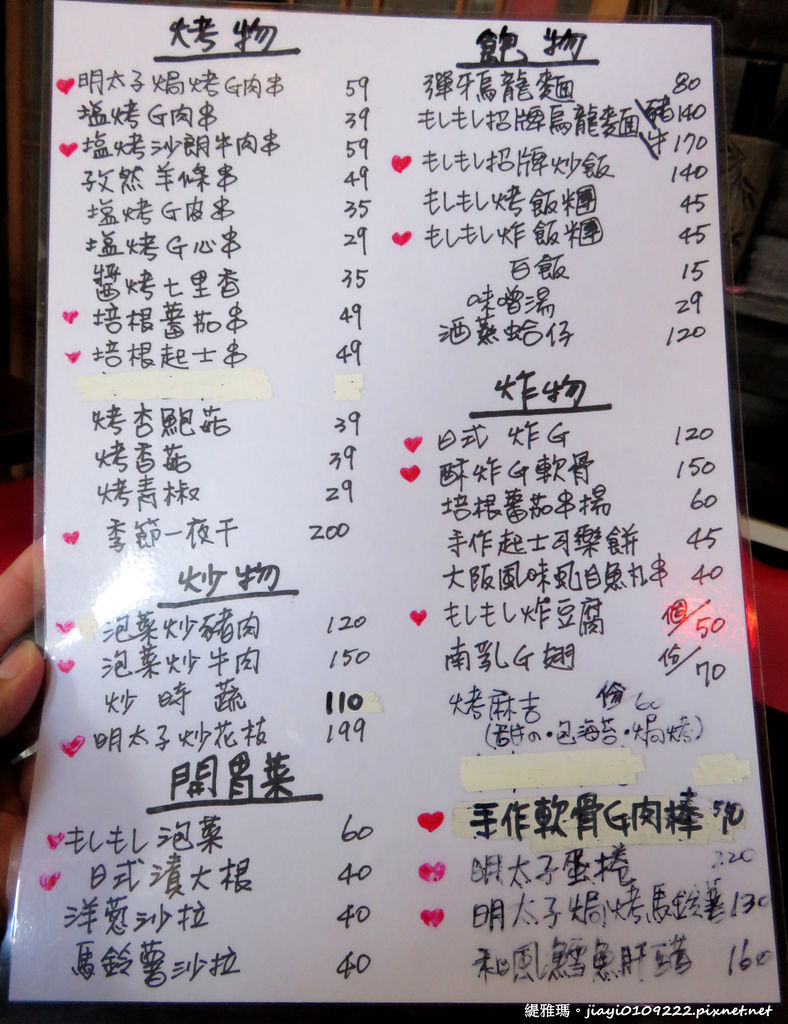 烤物
明太子焗烤G肉串 59
塩烤G肉串 39
塩烤沙朗牛肉串 59
孜然羊條串 49
塩烤G皮串 35
塩烤G心串 29
醬烤七里香 35
培根蕃茄串 49
培根起士串 49
烤杏鮑菇 39
烤香菇 39
烤青椒 29
季節一夜干 200
炒物
泡菜炒豬肉 120
泡菜炒牛肉 150
炒時蔬 110
明太子炒花枝 199
開胃菜
もしもし泡菜 60
日式漬大根 40
洋蔥沙拉 40
馬鈴薯沙拉 40
飽物
彈牙烏龍麵 80
もしもし招牌烏龍麵 豬140
牛170
もしもし招牌炒飯 140
もしもし烤飯糰 45
もしもし炸飯糰 45
白飯 15
味噌湯 29
酒蒸蛤仔 120
炸物
日式炸G 120
酥炸G軟骨 150
培根蕃茄串揚 60
手作起士可樂餅 45
大阪風味虱目魚丸串 40
もしもし炸豆腐 個/50
南乳G翅 份/70
烤麻吉 份 60
(甜の·包海苔·焗烤)
手作軟骨G肉棒
明太子蛋捲
明太子焗烤馬鈴薯 130
和風鱈魚肝 160
緹雅瑪。jiayi0109222.pixnet.net